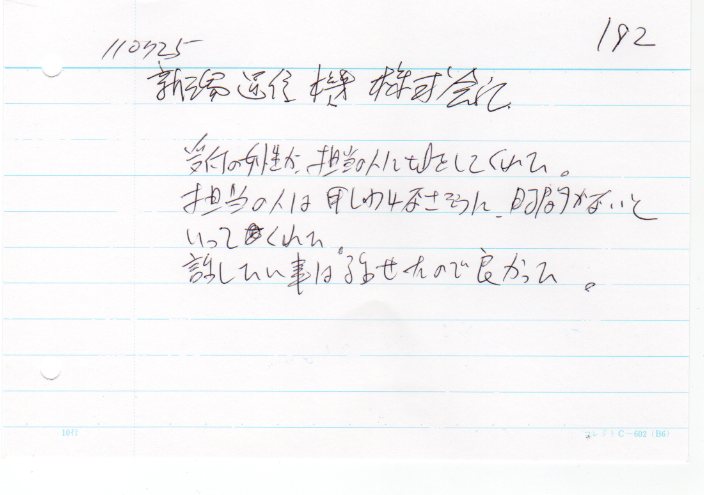 192
110725
新潟通信機 株式会社
受付の女性が、担当の人にtelをしてくれた。
担当の人は申しわけなさそうに、時間がないと
いってくれた。
話したい事は話せたので良かった。
10行
コレクト C-602 (B6)